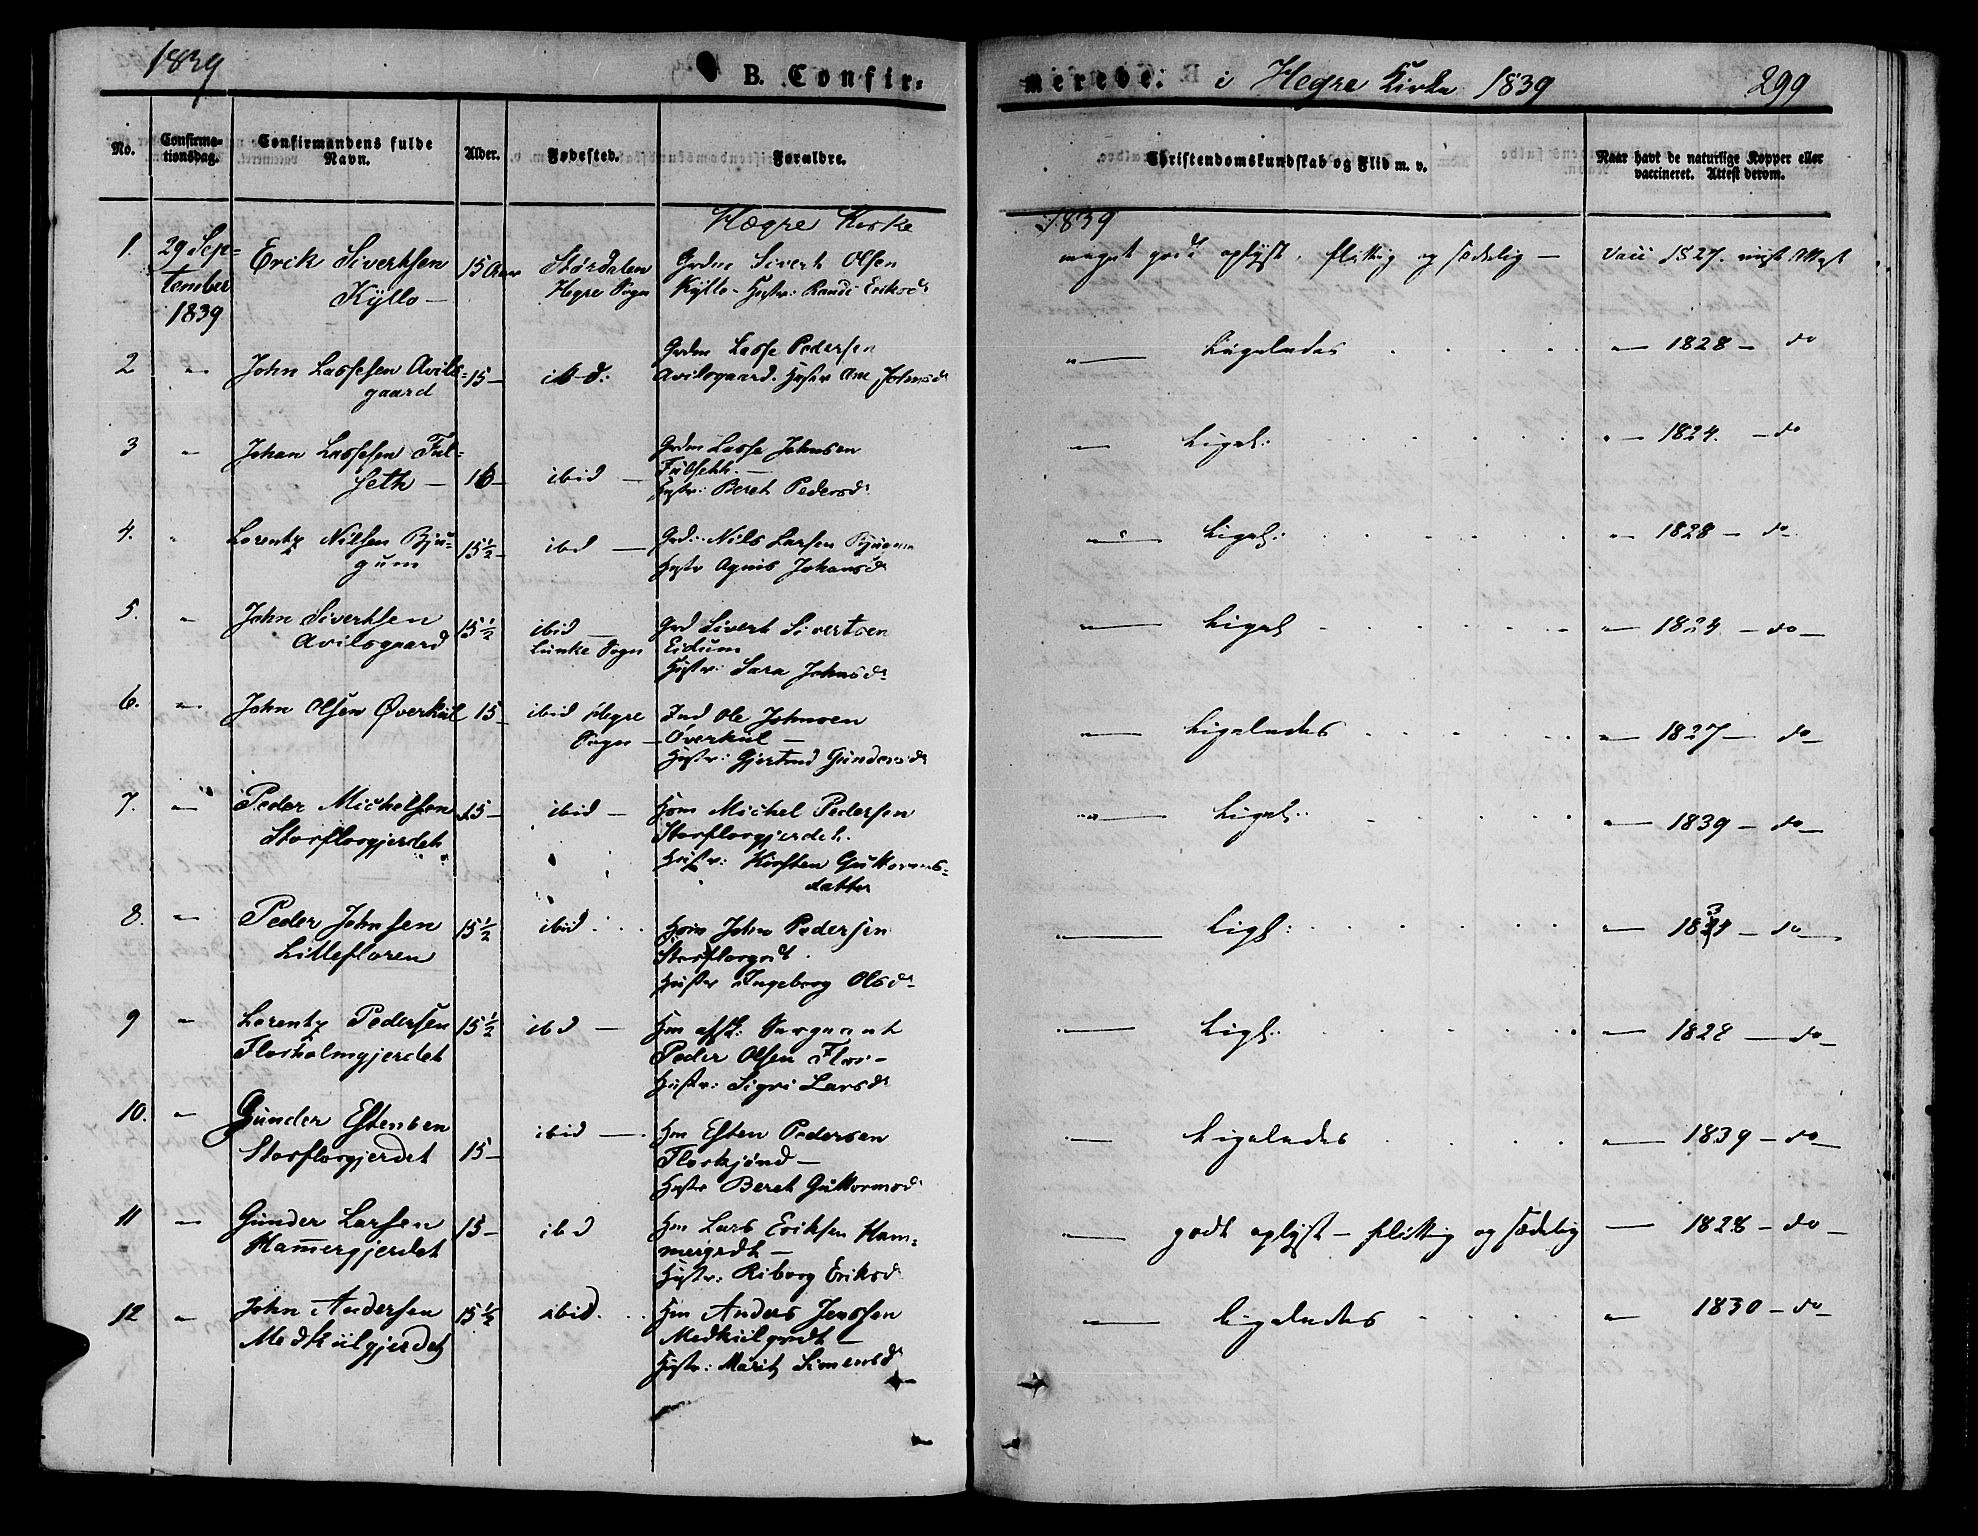 1839
B. Confir-
merede. i Hegre Kirke 1839
299
No.
Confirmationsdag.
Confirmandens fulde Navn.
Alder.
Fødested.
Forældre.
Christendomskundskab og Flid m. v.
Naar havt de naturlige Kopper eller vaccineret. Attest derom.
Hægre Kirke
1839
1. 29 Sep=
tember
1839
Erik Sivertsen
Kyllo —
15 Aar
Størdalen
Hegre Sogn
Grdm Sivert Olsen
Kyllo - Hustr: Randi Eriksd.
meget godt oplyst, flittig og sædelig —
Vacc 1827.
2 " John Lassesen Avils=
gaard
15 —
ibd:
Grdm Lasse Pedersen
Avilsgaard. Hustr Ane Johnsd.
" — Ligeledes
" — 1828 — do
3 " Johan Lassesen Ful=
seth —
16 —
ibid —
Grdm Lasse Johnsen
Fulseth. —
Hustr: Beret Pedersd.
— Ligel:
" — 1824. — do
4. " Lorentz Nilsen Bju=
gum
15½ —
ibid —
Grd: Nils Larsen Bjugum
Hustr Agnis Johansd.
— Ligel:
" — 1828 — do
5. " John Sivertsen
Avilsgaard
15½
ibid —
Lunke Sogn
Grd Sivert Sivertsen
Eidum
Hustr: Sara Johnsd.
— Ligel
" — 1824 — do —
6. " John Olsen Øverkul
15 —
ibid Hegre
Sogn —
Ind Ole Johnsen
Overkul —
Hustr: Gjertrud Gundersd.
— Ligeledes
" — 1827 — do —
7. " Peder Michelsen
Storflorgjerdet
15 —
ibid —
Hsm Michel Pedersen
Storflorgjerdet.
Hustr: Kirsten Guttorms=
datter
" — Ligel:
" — 1839 — do —
8. " Peder Johnsen
Litlefloren
15½
ibid
Hsm John Pedersen
Storflorgrdt
Hustr Ingeborg Olsd.
— Ligl:
— do —
9 " Lorentz Pedersen
Florholmgjerdet
15½
ibd —
Hm afsk: Sergeant
Peder Olsen Flor —
Hustr: Sigri Larsd.
— Ligl:
" — 1828 — do —
10. " Gunder Estensen
Storflorgjerdet
15 —
ibid —
Hm Esten Pedersen
Flortjønd —
Hustr Beret Guttormsd.
— Ligeledes
" — 1839 — do —
11 " Gunder Larsen
Hamergjerdet
15 —
ibd
Hm Lars Eriksen Ham=
mergrdt —
Hustr: Riborg Eriksd.
— godt oplyst — flittig og sædelig
— 1828 — do —
12 " John Andersen
Medkiilgjerdet
15½
ibid.
Hm Anders Jenssen
Medkiilgrdt —
Hustr: Marit Simensd
— Ligeledes
" — 1830 — do —